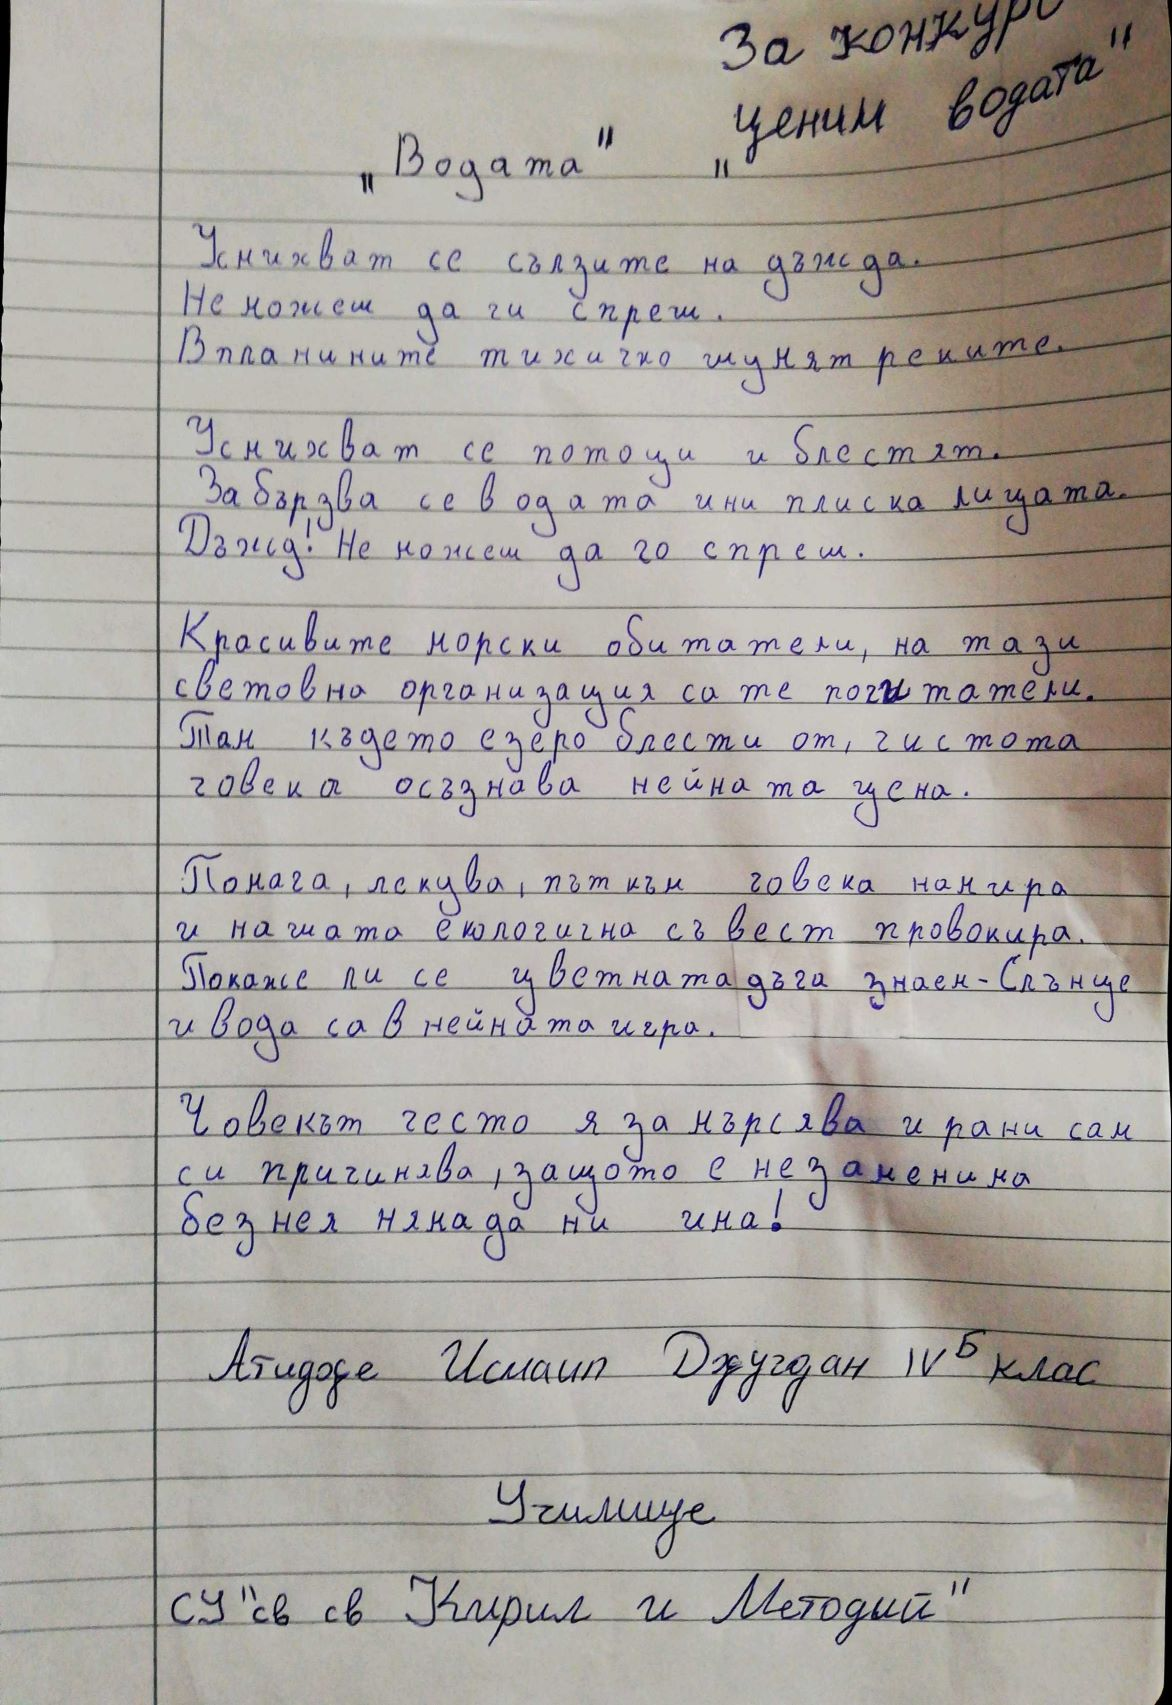 За конкурс
„ценим водата"
„Водата"
Усмихват се сълзите на дъжда.
Не можеш да ги спреш.
В планините тихичко шумят реките.
Усмихват се потоци и блестят.
Забързва се водата и ни плиска лицата.
Дъжд! Не можеш да го спреш.
Красивите морски обитатели, на тази
световна организация са те почитатели.
Там където езеро блести от, чистота
човека осъзнава нейната цена.
Помага, лекува, път към човека намира
и нашата екологична съвест провокира.
Покаже ли се цветната дъга знаем - Слънце
и вода са в нейната игра.
Човекът често я замърсява и рани сам
си причинява, защото е незаменима
без нея няма да ни има!
Атидже Исмаил Джугдан IVБ клас
Училище
СУ "св св Кирил и Методий"